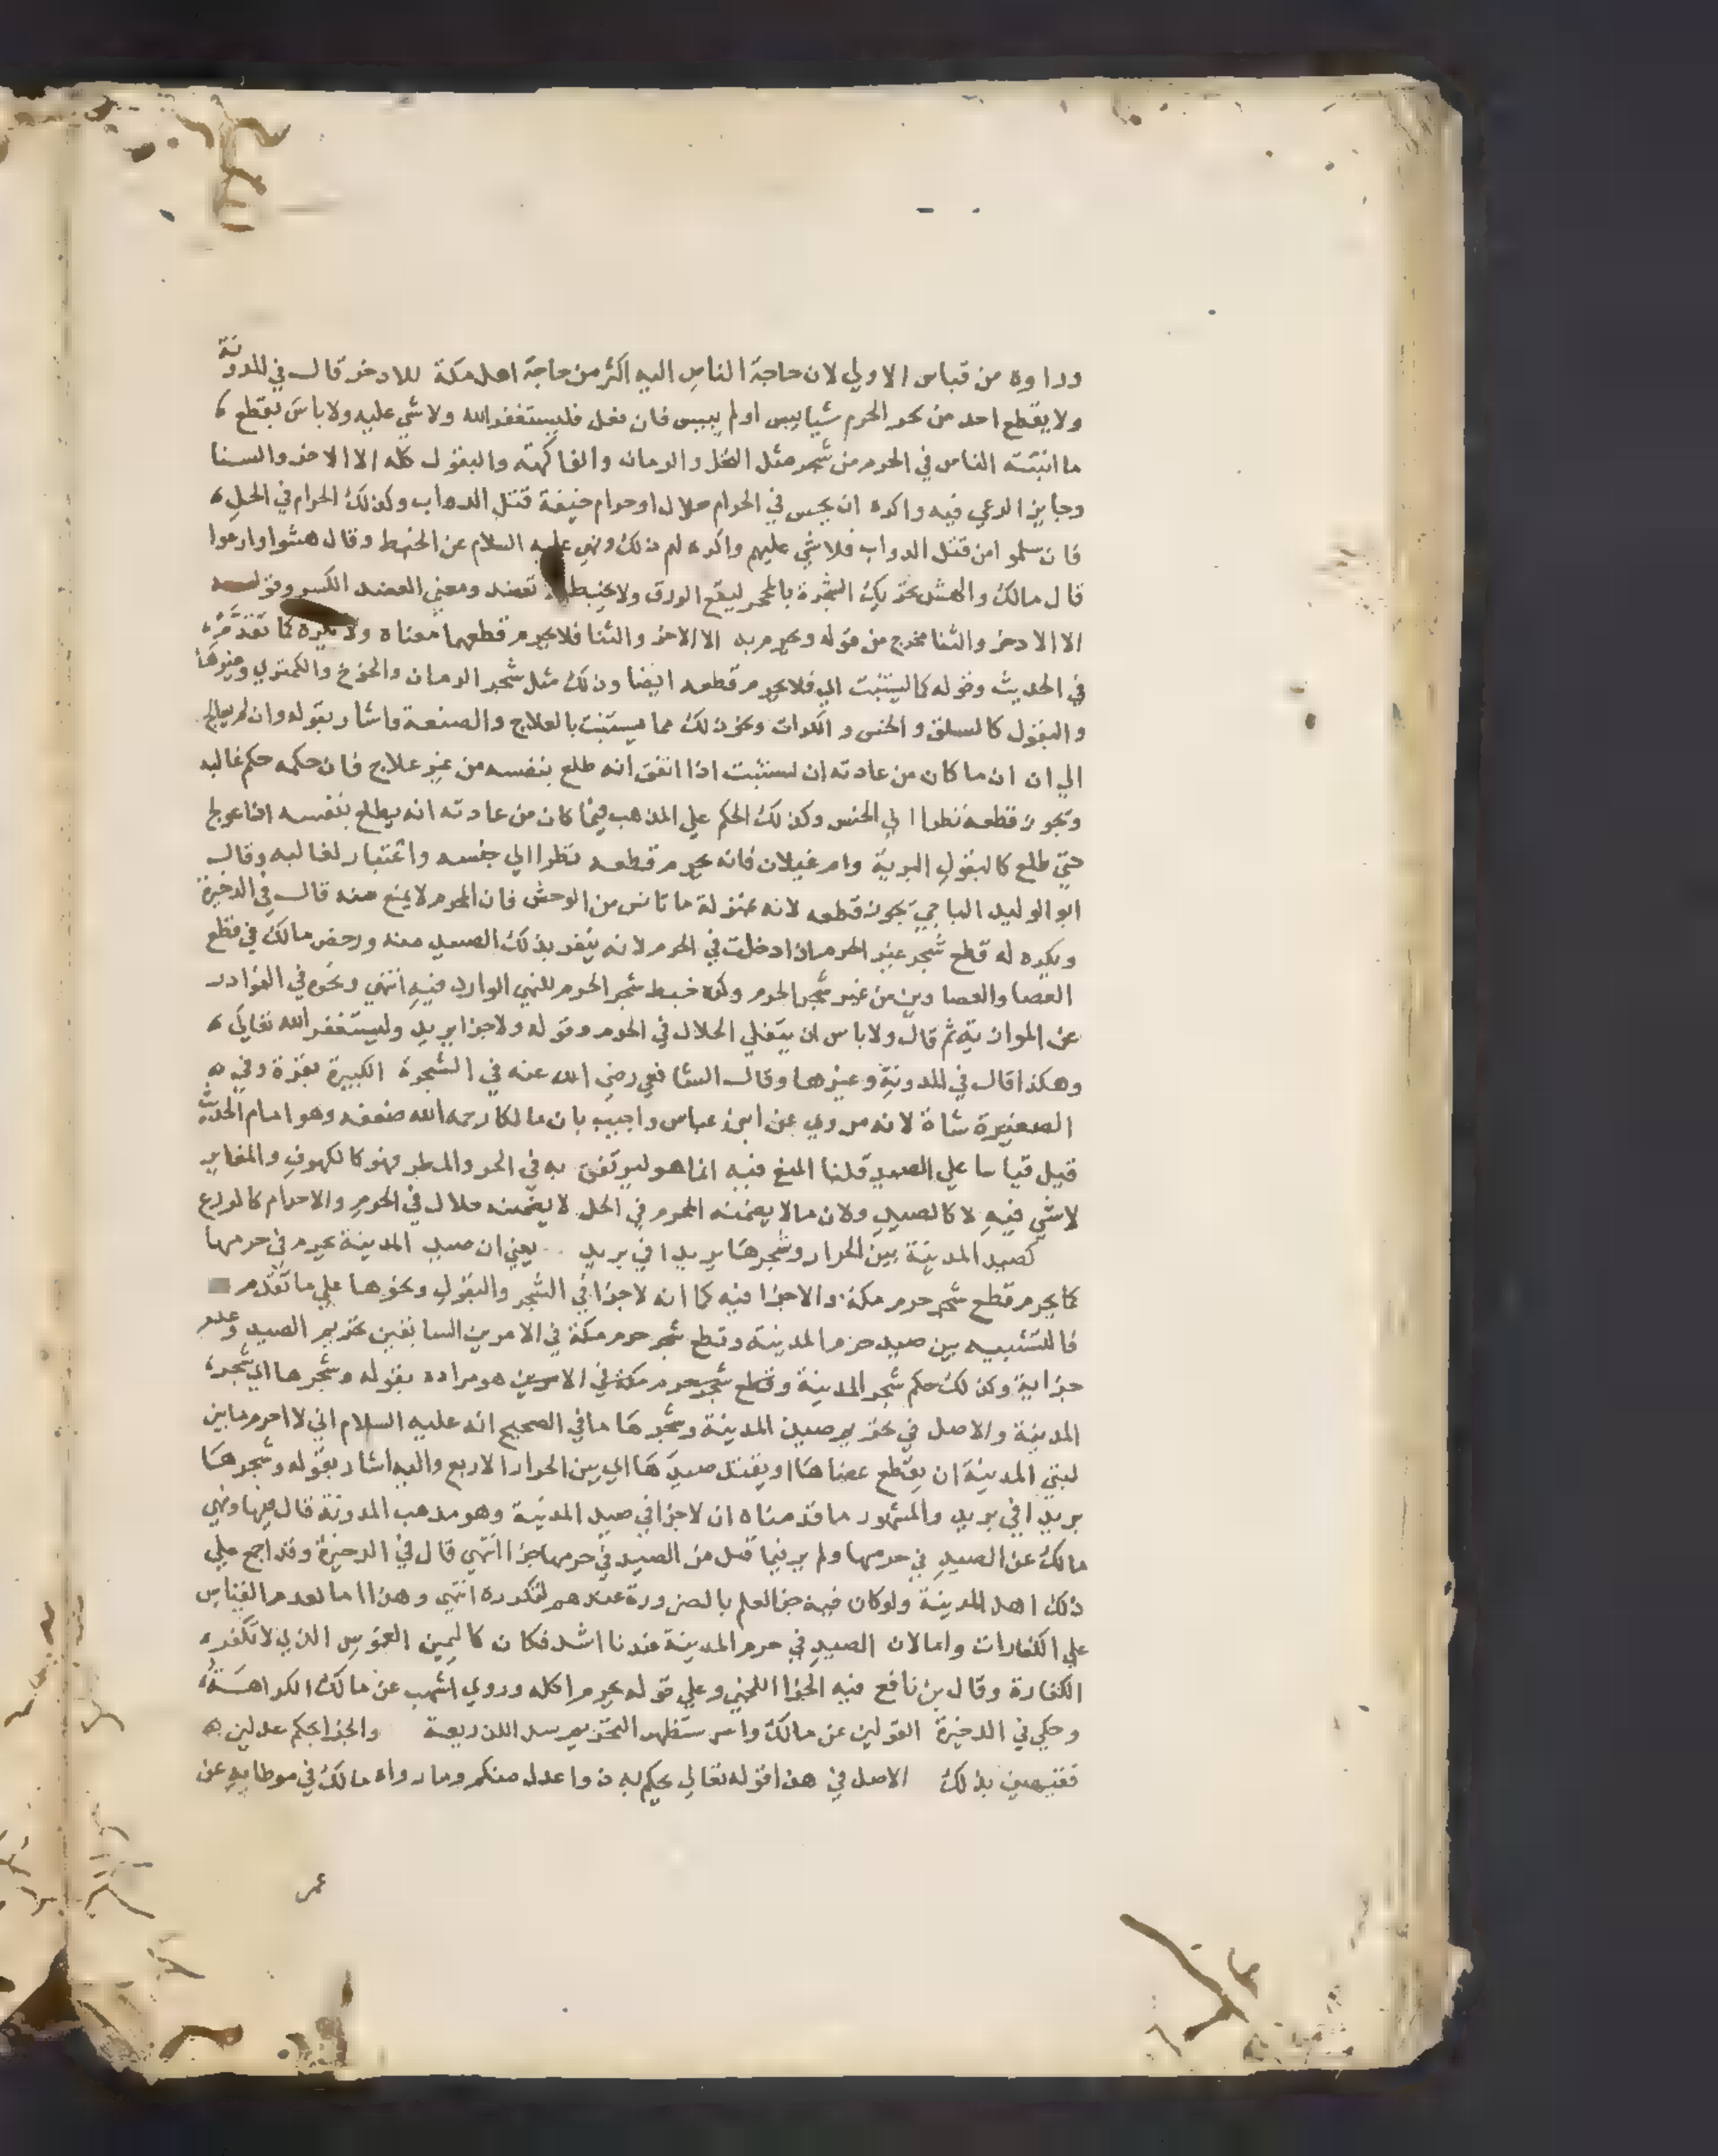 وراوه من قياس الاولي لان حاجة الناس اليه اكثر من حاجة اهل مكة للادخر قال في المدونة
ولا يقطع احد من شجر الحرم شيا يبس او لم ييبس فان فعل فليستغفر الله ولا شي عليه ولا باس بقطع
ما انبته الناس في الحرم من شجر مثل النخل والرمان والفاكهة والبقول كله الا الاذخر والسنا
وجايز الرعي فيه واكره ان يحبس في الحرام حلال او حرام خيفة قتل الدواب وكذلك الحرام في الحل
فان سلموا من قتل الدواب فلا شي عليهم واكره لهم ذلك ونهي عليه السلام عن الخبط وقال هشوا وارعوا
قال مالك والهش تحريك الشجرة بالمحجر ليقع الورق ولا يخبط تعضد ومعني العضد الكسر وقوله
الا الادخر والثنا مخرج من قوله وحرم به الا الاذخر والثنا فلا يحرم قطعهما معناه ولا يكره كما تقدم
في الحديث وقوله كما ليستنبت اي فلا يحرم قطعه ايضا وذلك مثل شجر الرمان والخوخ والكمثري وغيرها
والبقول كالسلق والخس والكراث ونحو ذلك مما يستنبت بالعلاج والصنعة واشار بقوله وان لم يعالج
الي ان ان ما كان من عادته ان يستنبت اذا اتفق انه طلع بنفسه من غير علاج فان حكمه حكم غالبه
ويجوز قطعه نظرا الي الجنس وكذلك الحكم علي المذهب فيما كان من عادته انه يطلع بنفسه اذا عولج
حتي طلع كالبقول البرية وام غيلان فانه يحرم قطعه نظرا الي جنسه واعتبار لغالبه وقال
ابو الوليد الباجي يجوز قطعه لانه بمنزلة ما تانس من الوحش فان المحرم لا يمنع منه قال في الدخيرة
ويكره له قطع شجر غير الحرم اذا دخلت في الحرم لانه ينفر بذلك الصيد منه ورخص مالك في قطع
العصا والعصاوين من غير شجر الحرم وكره خبط شجر الحرم للنهي الوارد فيه انتهي ونحوه في النوادر
عن الموازية ثم قال ولا باس ان يتغلي الحلال في الحرم وقوله ولا جزا يريد وليستغفر الله تعالي
وهكذا قال في المدونة وغيرها وقال الشافعي رضي الله عنه في الشجرة الكبيرة بقرة وفي
الصغيرة شاة لانه مروي عن ابن عباس واجيب بان مالكا رحمه الله ضعفه وهو امام الحديث
قيل قياسا علي الصيد قلنا المنع فيه انما هو ليرتفق به في الحر والمطر فهو كالكهوف والمغاير
لا شي فيه لا كالصيد ولان ما لا يضمنه المحرم في الحل لا يضمنه حلال في الحرم والاحرام كالورع
كصيد المدينة بين الحرار وشجرها بريدا في بريد يعني ان صيد المدينة يحرم في حرمها
كما يحرم قطع شجر حرم مكة والا جزا فيه كما انه لا جزا في الشجر والبقول ونحوها علي ما تقدم
فالتشبيه بين صيد حرم المدينة وقطع شجر حرم مكة في الامرين السابقين تحريم الصيد وعدم
جزاية وكذلك حكم شجر المدينة وقطع شجر حرم مكة في الامرين هو مراده بقوله وشجرها اي شجر
المدينة والاصل في تحريم صيد المدينة وشجرها ما في الصحيح انه عليه السلام اني لا احرم ما بين
لبتي المدينة ان يقطع عضاها او يقتل صيدها اي بين الحرار الاربع واليه اشار بقوله وشجرها
بريدا في بريد والمشهور ما قدمناه ان لا جزا في صيد المدينة وهو مذهب المدونة قال فيها ونهي
مالك عن الصيد في حرمها ولم ير فيما قتل من الصيد في حرمها جزا انتهي قال في الدخيرة وقد اجمع علي
ذلك اهل المدينة ولو كان فيه جزا لعلم بالضرورة عندهم لتكرره انتهي وهذا اما لعدم القياس
علي الكفارات واما لان الصيد في حرم المدينة عندنا اشد فكان كاليمين الغموس الذي لا تكفره
الكفارة وقال بن نافع فيه الجزا اللخمي وعلي قوله يحرم اكله وروي اشهب عن مالك الكراهة
وحكي في الدخيرة القولين عن مالك واستظهر التحريم سد اللذريعة والجزا بحكم عدلين
فقيهين بذلك الاصل في هذا قوله تعالي يحكم به ذوا عدل منكم وما رواه مالك في موطايه عن
عمر